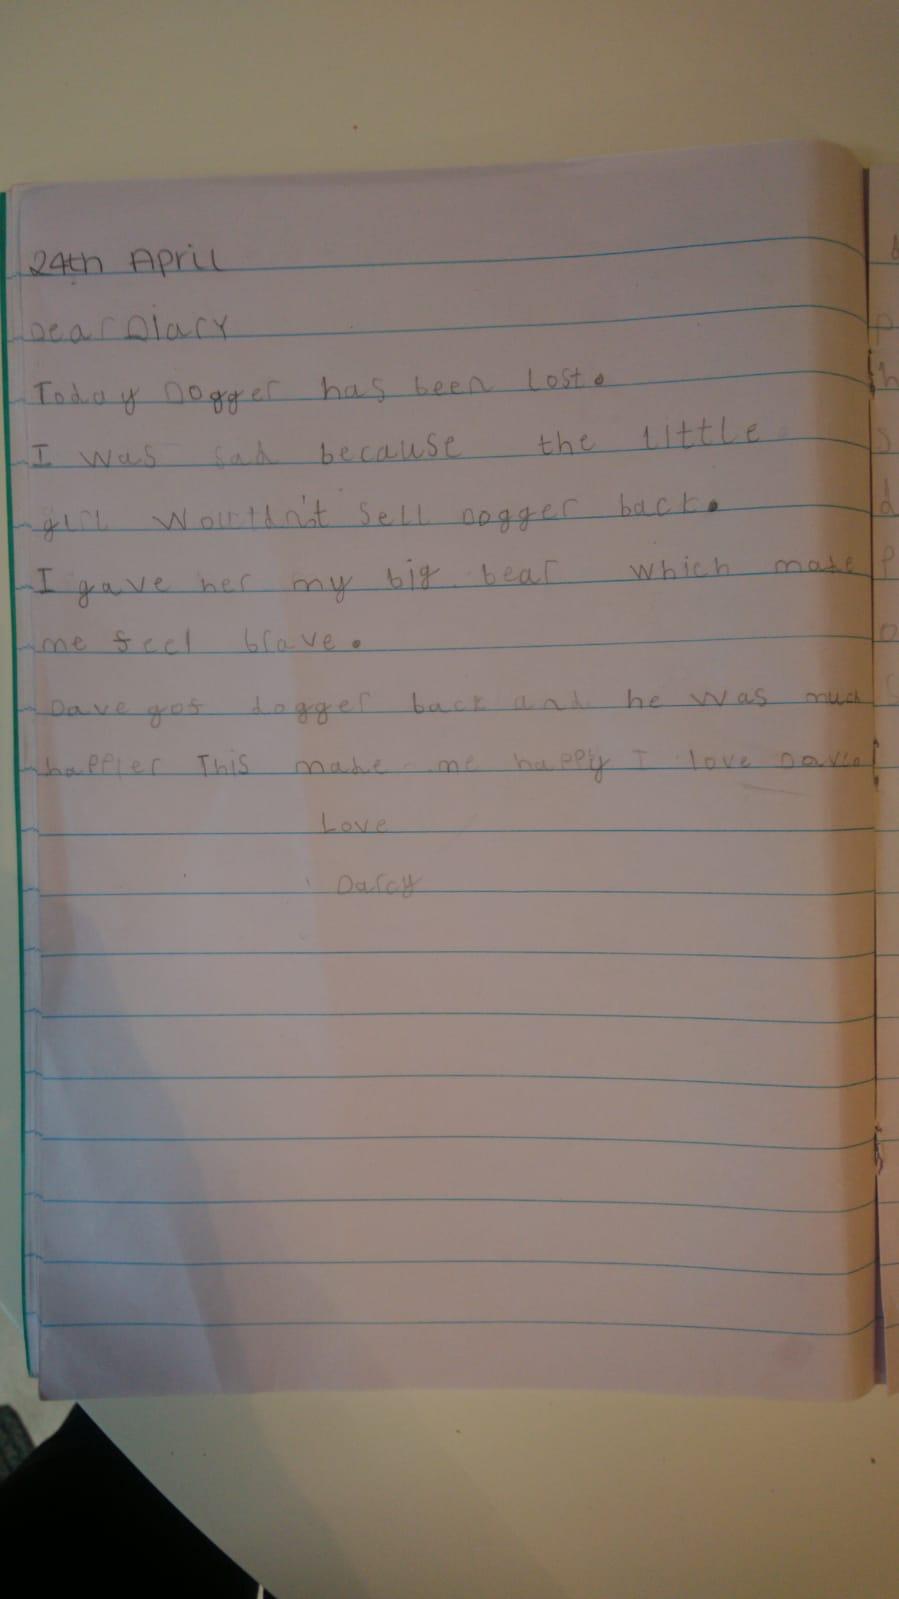 24th April
Dear Diary
Today Dogger has been lost.
I was sad because the little
girl wouldn't sell Dogger back.
I gave her my big bear which made
me feel brave.
Dave got dogger back and he was much
happier This made me happy I love Dave
Love
Darcy